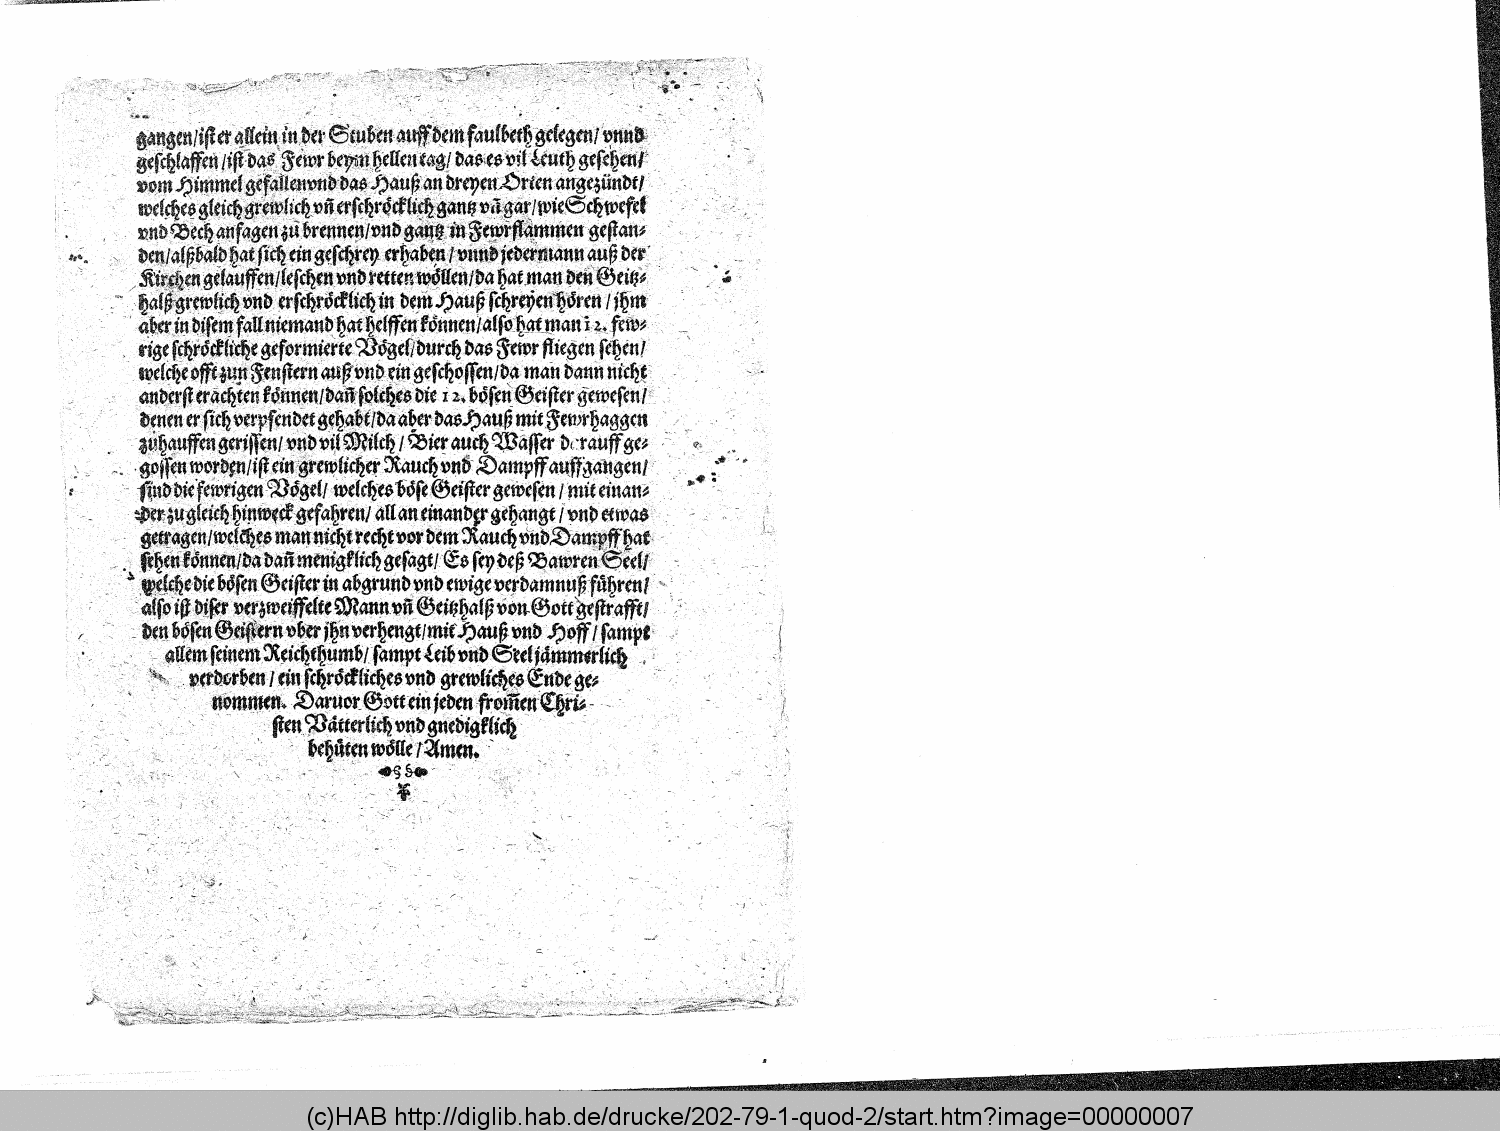 gangen/ist er allein in der Stuben auff dem faulbeth gelegen/ vnnd
geschlaffen /ist das Fewr beym hellen tag/ das es vil Leuth gesehen/
vom Himmel gefallen vnd das Hauß an dreyen Orten angezündt/
welches gleich grewlich vñ erschröcklich gantz vñ gar/wie Schwefel
vnd Bech anfagen zů brennen/vnd gantz in Fewrflammen gestan-
den/alßbald hat sich ein geschrey erhaben / vnnd jedermann auß der
Kirchen gelauffen/leschen vnd retten wöllen/da hat man den Geitz-
halß grewlich vnd erschröcklich in dem Hauß schreyen hören / jhm
aber in disem fall niemand hat helffen können/also hat man 12. few-
rige schröckliche geformierte Vögel/durch das Fewr fliegen sehen/
welche offt zun Fenstern auß vnd ein geschossen/da man dann nicht
anderst erachten können/dañ solches die 12. bösen Geister gewesen/
denen er sich verpfendet gehabt/da aber das Hauß mit Fewrhaggen
zůhauffen gerissen/ vnd vil Milch / Bier auch Wasser darauff ge-
gossen worden/ist ein grewlicher Rauch vnd Dampff auffgangen/
sind die fewrigen Vögel/ welches böse Geister gewesen / mit einan-
der zu gleich hinweck gefahren/ all an einander gehangt / vnd etwas
getragen/welches man nicht recht vor dem Rauch vnd Dampff hat
sehen können/da dañ menigklich gesagt/ Es sey deß Bawren Seel/
welche die bösen Geister in abgrund vnd ewige verdamnuß führen/
also ist diser verzweiffelte Mann vñ Geitzhalß von Gott gestrafft/
den bösen Geistern vber jhn verhengt/mit Hauß vnd Hoff / sampt
allem seinem Reichthumb/ sampt Leib vnd Seel jämmerlich
verdorben / ein schröckliches vnd grewliches Ende ge-
nommen. Daruor Gott ein jeden from̃en Chri-
sten Vätterlich vnd gnedigklich
behüten wölle / Amen.
(c)HAB http://diglib.hab.de/drucke/202-79-1-quod-2/start.htm?image=00000007